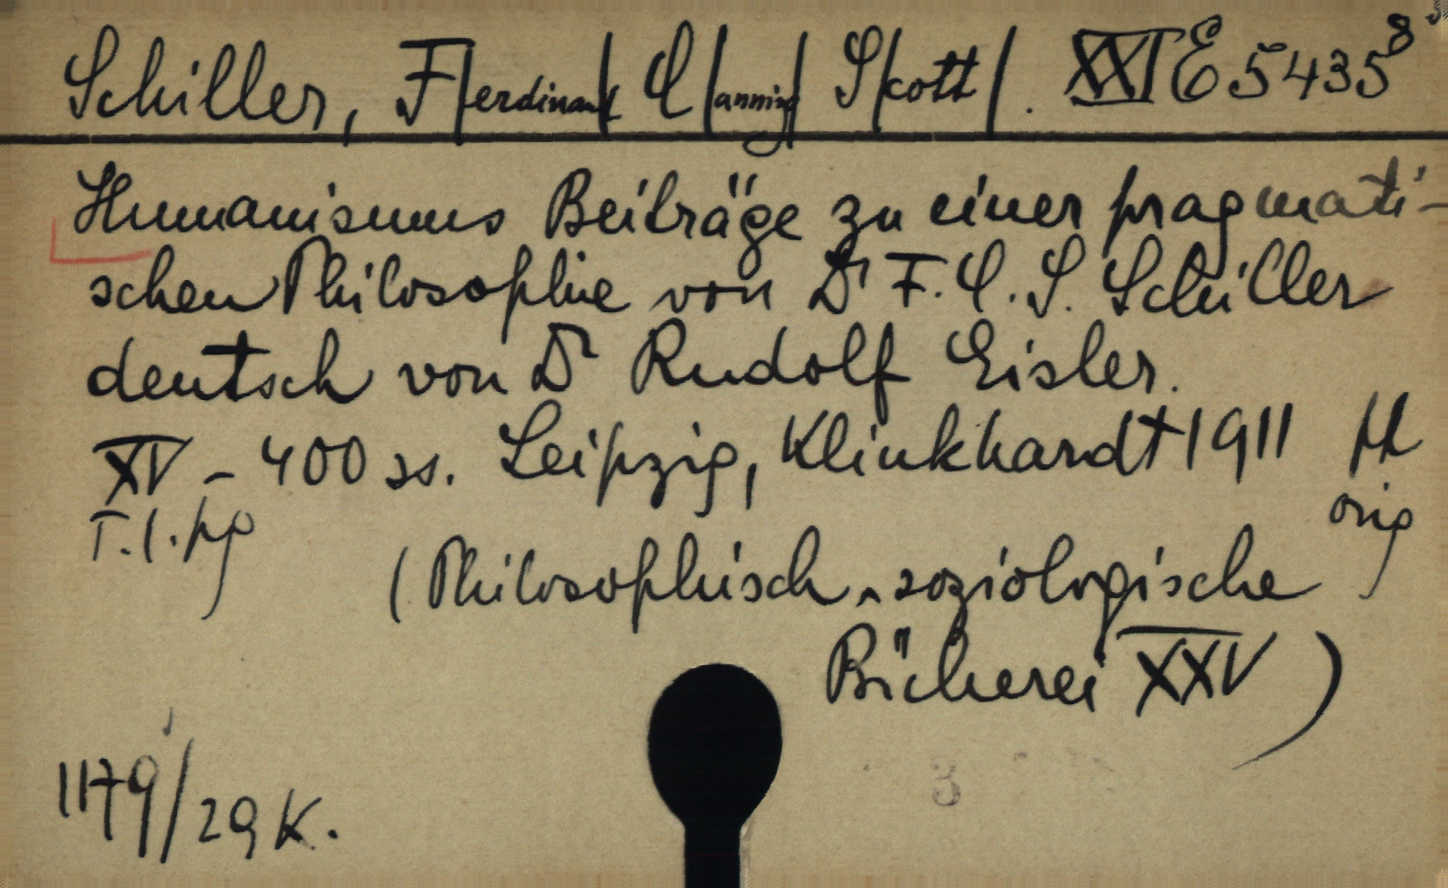 Schiller, F/erdinand/ C/anning/ S/cott/. XXI E 5435⁸
Humanismus Beiträge zu einer pragmati-
schen Philosophie von Dr F. C. S. Schiller
deutsch von Dr Rudolf Eisler.
XV - 400 ss. Leipzig, Klinkhardt 1911
T.l. pg orig
(Philosophisch-soziologische
Bücherei XXV)
1179/29 K.
3